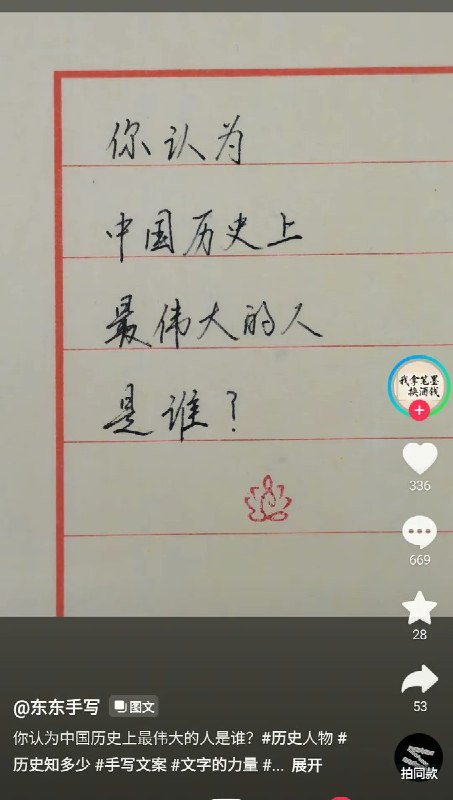 你认为
中国历史上
最伟大的人
是谁？
我拿笔墨
换酒钱
336
669
28
53
@东东手写 图文
你认为中国历史上最伟大的人是谁？#历史人物 #
历史知多少 #手写文案 #文字的力量 #... 展开
拍同款